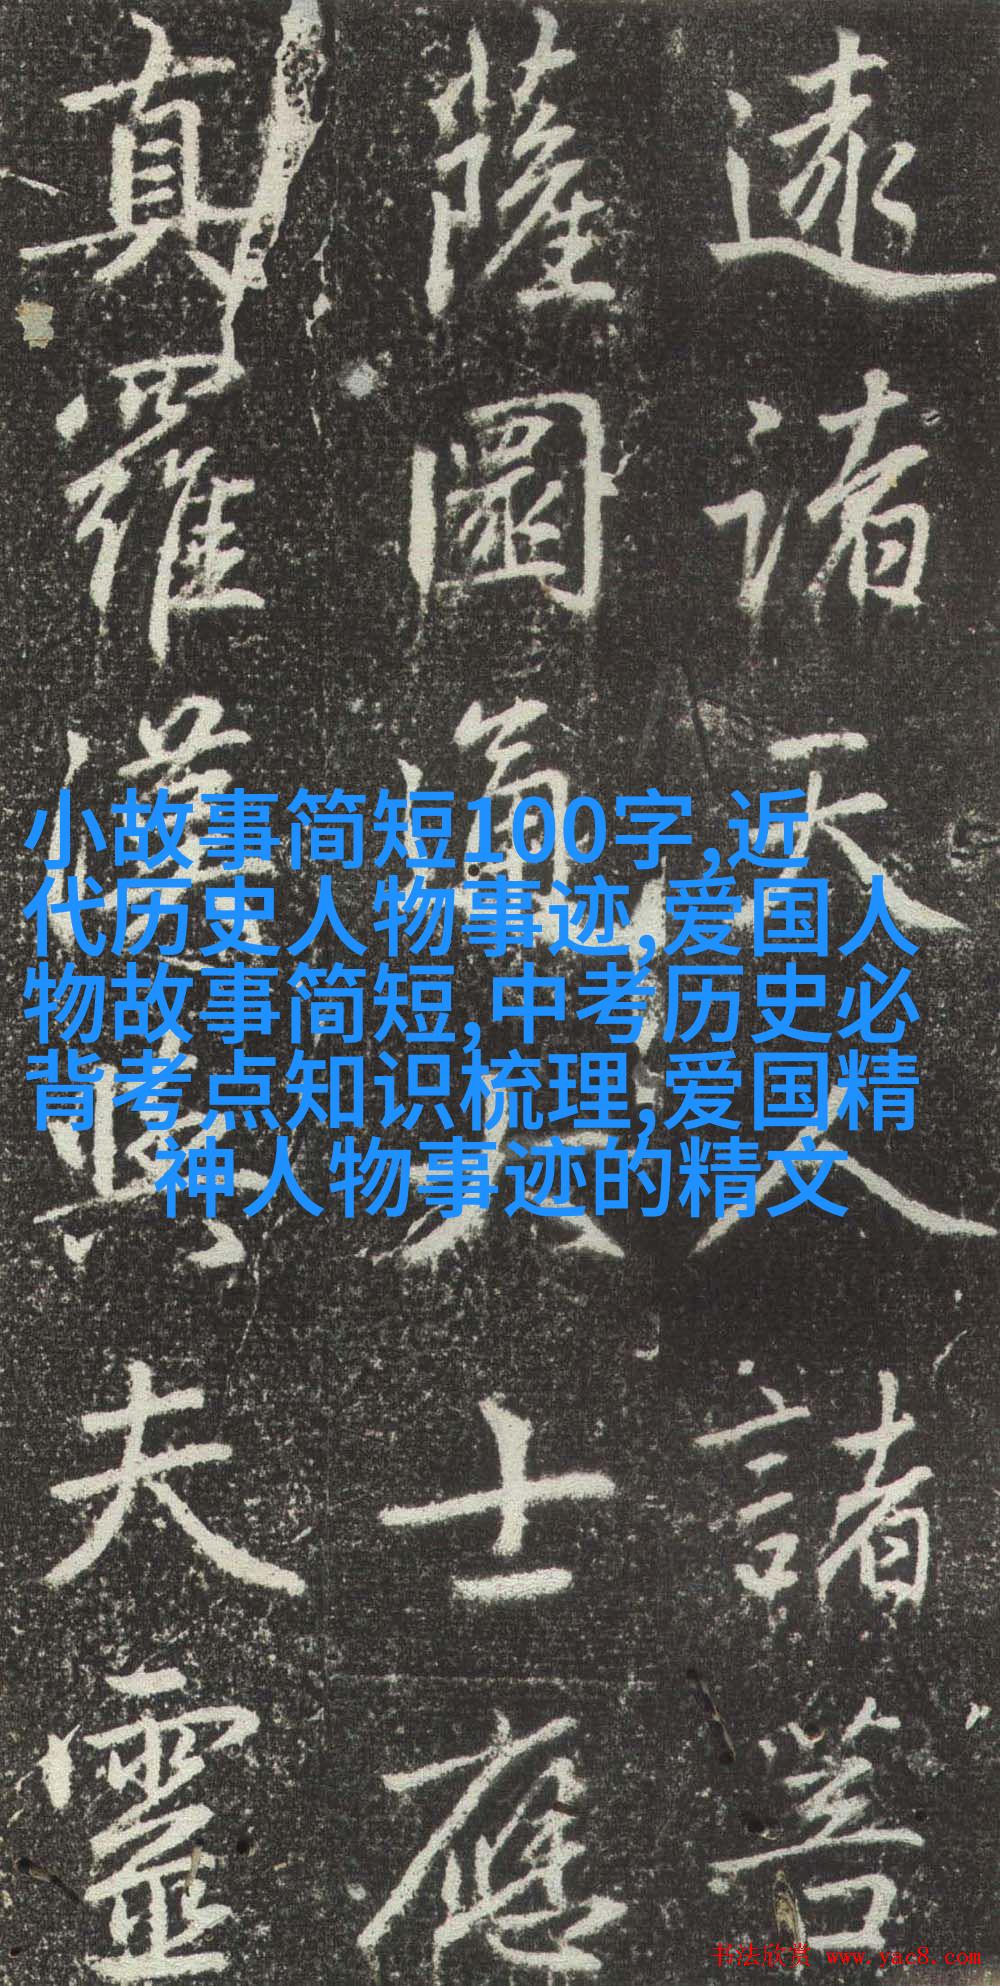 諸天人諸菩
薩大士應
真羅漢與夫靈
小故事简短100字,近
代历史人物事迹,爱国人
物故事简短,中考历史必
背考点知识梳理,爱国精
神人物事迹的精文
书法欣赏 www.yac8.com